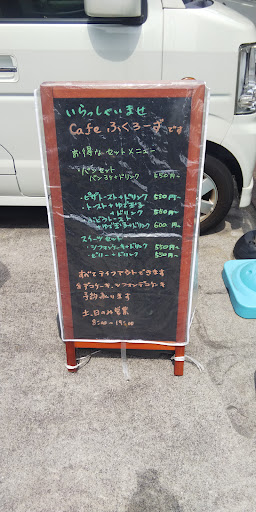 いらっしゃいませ
Cafe ふくろーず です
お得なセットメニュー
・パンセット
パン3ケ+ドリンク 550円〜
・ピザトースト+ドリンク 550円〜
・トースト+ゆで玉子
+ドリンク 550円〜
ゆで玉子+ドリンク 600円〜
スイーツセット
・シフォンケーキ+ドリンク 550円〜
・ゼリー+ドリンク 550円〜
すべてテイクアウトできます
デコケーキ、シフォンデコケーキ
予約承ります
土、日のみ営業
8:00〜17:00